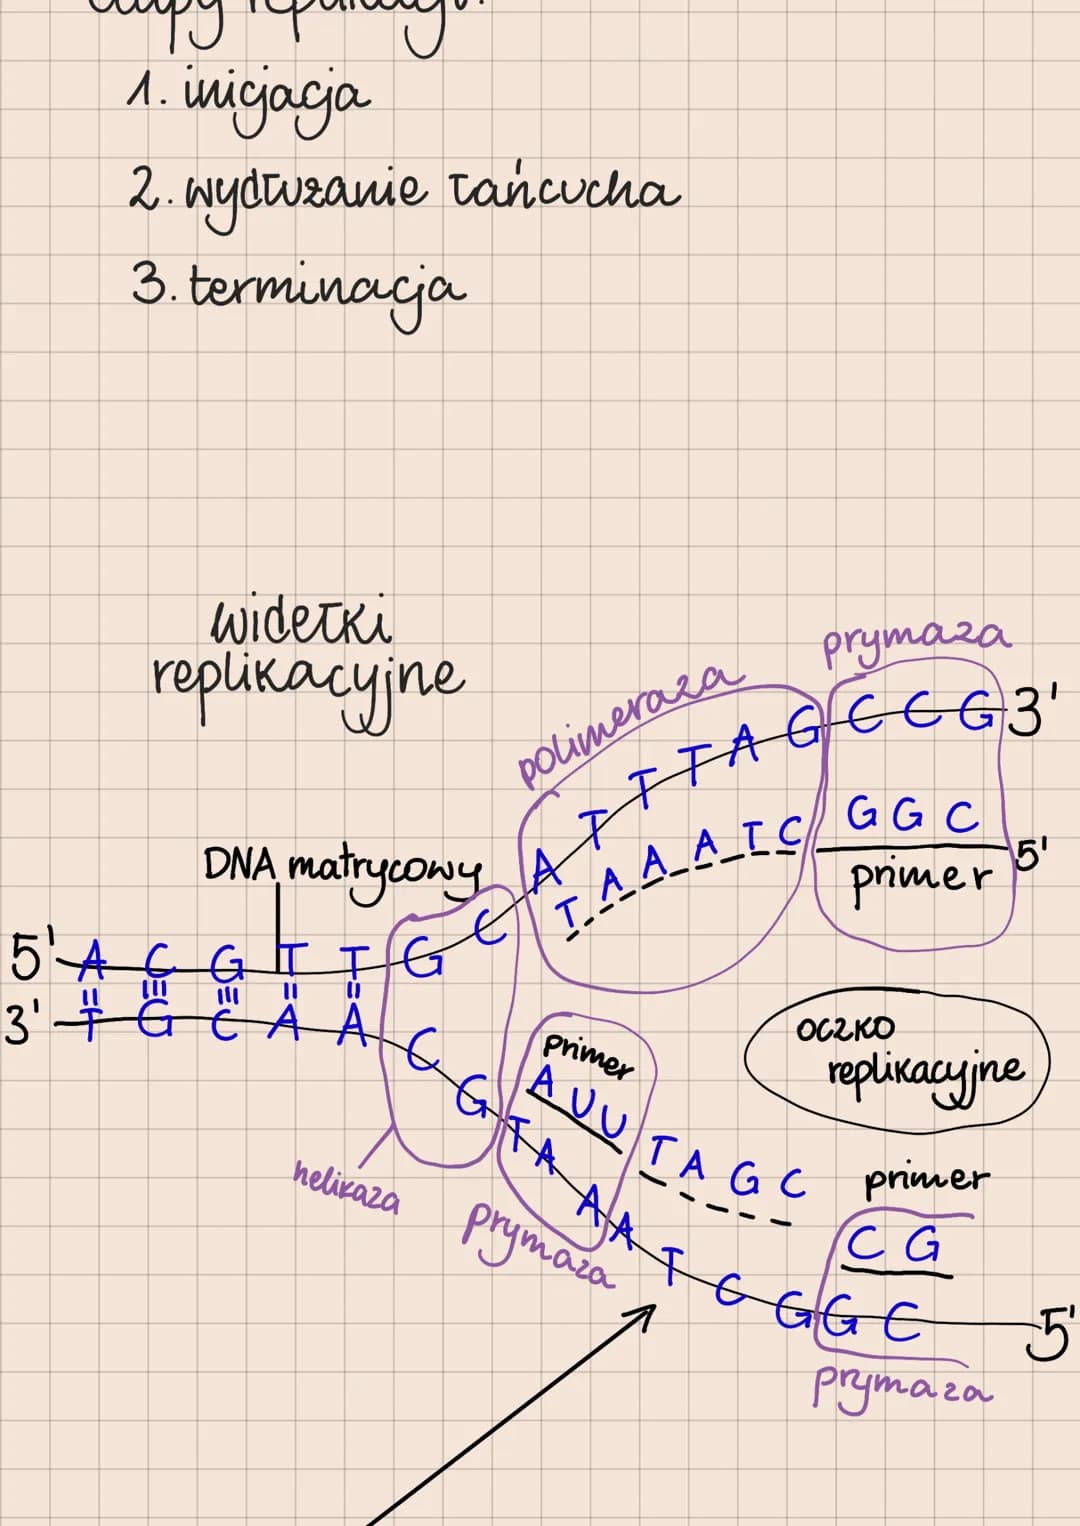 etapy replikacji:
1. inicjacja
2. wydłużanie łańcucha
3. terminacja
widełki
replikacyjne
prymaza
polimeraza
A T T T A G C C G 3'
T A A A T C G G C 5'
primer
DNA matrycowy
5' A C G T T G C
3' T G C A A C G
oczko
replikacyjne
primer
A U U T A G C
primer
C G
T A A A T C G G C 5'
helikaza
prymaza
prymaza